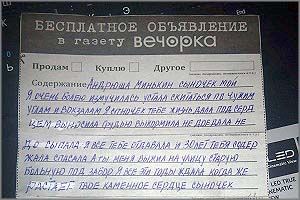 БЕСПЛАТНОЕ ОБЪЯВЛЕНИЕ
в газету вечорка
Продам Куплю Другое
Содержание АНДРЮША МИНЬКИН СЫНОЧЕК МОЙ
Я ОЧЕНЬ БОЛЕЮ ИЗМУЧИЛАСЬ УСТАЛА СКИТАТЬСЯ ПО ЧУЖИМ
УГЛАМ И ВОКЗАЛАМ Я СЫНОЧЕК ТЕБЕ ЖИЗНЬ ДАЛА ПОД СЕРД
ЦЕМ ВЫНОСИЛА ГРУДЬЮ ВЫКОРМИЛА НЕ ДОЕДАЛА НЕ
ДО СЫПАЛА Я ВСЕ ТЕБЕ ОТДАВАЛА И 30 ЛЕТ ТЕБЯ СОДЕР
ЖАЛА СПАСАЛА А ТЫ МЕНЯ ВЫЖИЛ НА УЛИЦУ СТАРУЮ
БОЛЬНУЮ ПОД ЗАБОР Я ВСЕ ЭТИ ГОДЫ ЖДАЛА КОГДА ЖЕ
РАСТАЕТ ТВОЕ КАМЕННОЕ СЕРДЦЕ СЫНОЧЕК
LED
LED TRUE